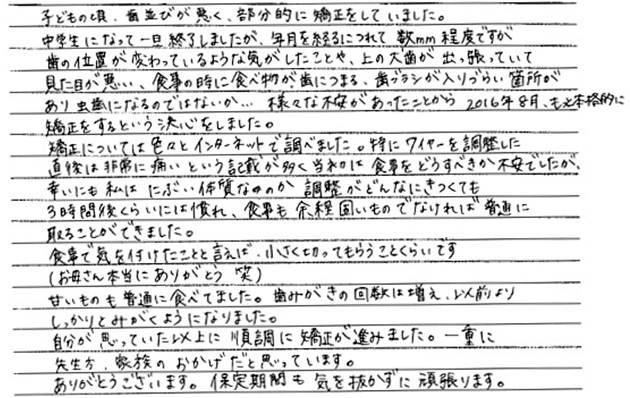 子どもの頃、歯並びが悪く、部分的に矯正をしていました。
中学生になって一旦終了しましたが、年月を経るにつれて 数mm程度ですが
歯の位置が変わっているような気がしたことや、上の犬歯が出っ張っていて
見た目が悪い、食事の時に食べ物が歯につまる、歯ブラシが入りづらい箇所が
あり虫歯になるのではないか… 様々な不安があったことから 2016年8月、も 本格的に
矯正をするという決心をしました。
矯正については色々とインターネットで調べました。特にワイヤーを調整した
直後は非常に痛いという記載が多く当初は食事をどうすべきか不安でしたが、
幸いにも私は にぶい体質なのか 調整がどんなにきつくても
3時間後くらいには慣れ、食事も余程固いものでなければ普通に
取ることができました。
食事で気を付けたことと言えば、小さく切ってもらうことくらいです
(お母さん本当にありがとう 笑)
甘いものも普通に食べてました。歯みがきの回数は増え、以前より
しっかりとみがくようになりました。
自分が思っていた以上に順調に矯正が進みました。一重に
先生方、家族のおかげだと思っています。
ありがとうございます。保定期間も気を抜かずに頑張ります。